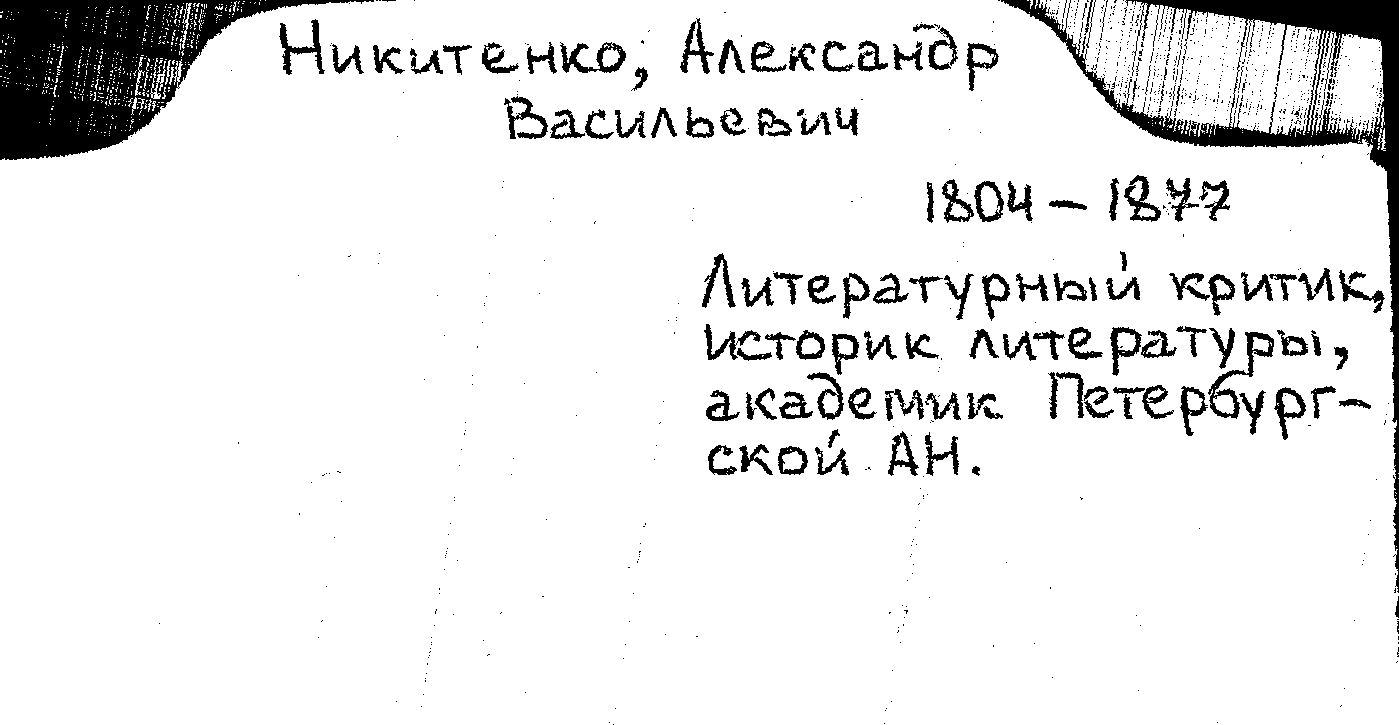 Никитенко, Александр
Васильевич
1804 – 1877
Литературный критик,
историк литературы,
академик Петербург-
ской АН.